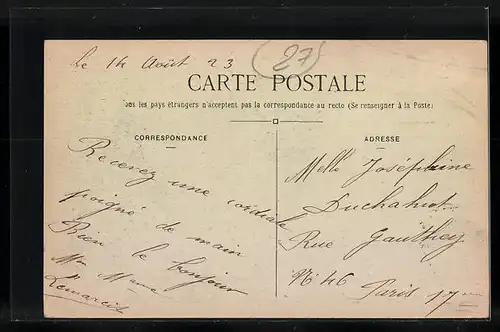 Le 14 Août 23
27
CARTE POSTALE
ous les pays étrangers n'acceptent pas la correspondance au recto (Se renseigner à la Poste)
CORRESPONDANCE
Recevez une cordiale
poigné de main
Bien le bonjour
Mr Mme
ADRESSE
Melle Joséphine
Duchahut
Rue Gauthey
N° 46
Paris 17